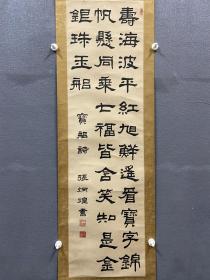 壽海波平紅旭鮮遙看寶字錦
帆懸同乘七福皆含笑知是金
銀珠玉船
寶船詩 張炳煌書